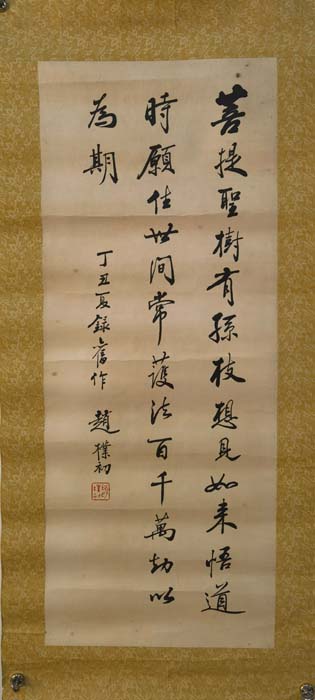 菩提聖樹有孫枝想見如来悟道
時願住世间常護法百千萬劫以
為期
丁丑夏録舊作 趙樸初